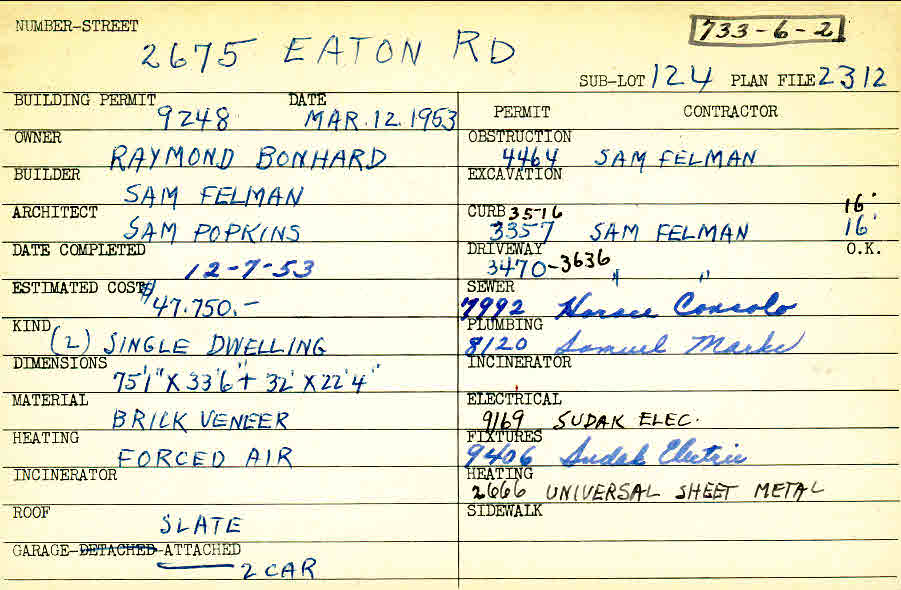 NUMBER-STREET
2675 EATON RD
733-6-2
SUB-LOT 124 PLAN FILE 2312
BUILDING PERMIT DATE
9248 MAR. 12. 1953
OWNER
RAYMOND BONHARD
BUILDER
SAM FELMAN
ARCHITECT
SAM POPKINS
DATE COMPLETED
12-7-53
ESTIMATED COST
$47.750.-
KIND
(2) SINGLE DWELLING
DIMENSIONS
75'1" X 33'6" + 32' X 22'4"
MATERIAL
BRICK VENEER
HEATING
FORCED AIR
INCINERATOR
ROOF
SLATE
GARAGE-DETACHED-ATTACHED
2 CAR
PERMIT CONTRACTOR
OBSTRUCTION
4464 SAM FELMAN
EXCAVATION
CURB 3516 16'
3357 SAM FELMAN 16'
DRIVEWAY O.K.
3470-3636 " "
SEWER
7992 Horace Consolo
PLUMBING
8120 Samuel Marks
INCINERATOR
ELECTRICAL
9169 SUDAK ELEC.
FIXTURES
9406 Sudak Electric
HEATING
2666 UNIVERSAL SHEET METAL
SIDEWALK